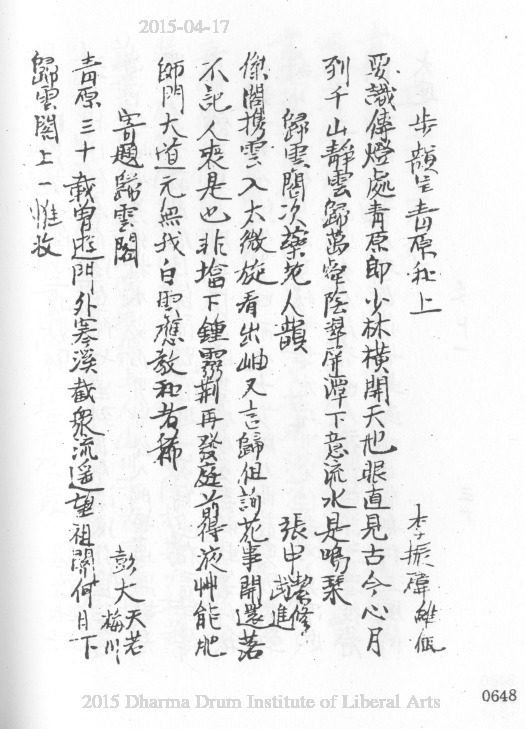 2015-04-17
步韻呈青原和上
李振𥙿維侃
要識傳燈處青原即少林橫開天地眼直見古今心月
到千山靜雲歸萬壑陰翠屏潭下意流水是鳴琴
歸雲閣次藥地人韻
張中潔修 武進
傑閣攜雲入太微旋看出岫又言歸但詢花事開還落
不記人來是也非壇下鍾靈荊再發庭前得液艸能肥
師門大道元無我白雲應教和者稀
寄題歸雲閣
彭大天若 梅川
青原三十載曾遊門外寒溪截衆流遥望祖關何日下
歸雲閣上一惟收
2015 Dharma Drum Institute of Liberal Arts
0648